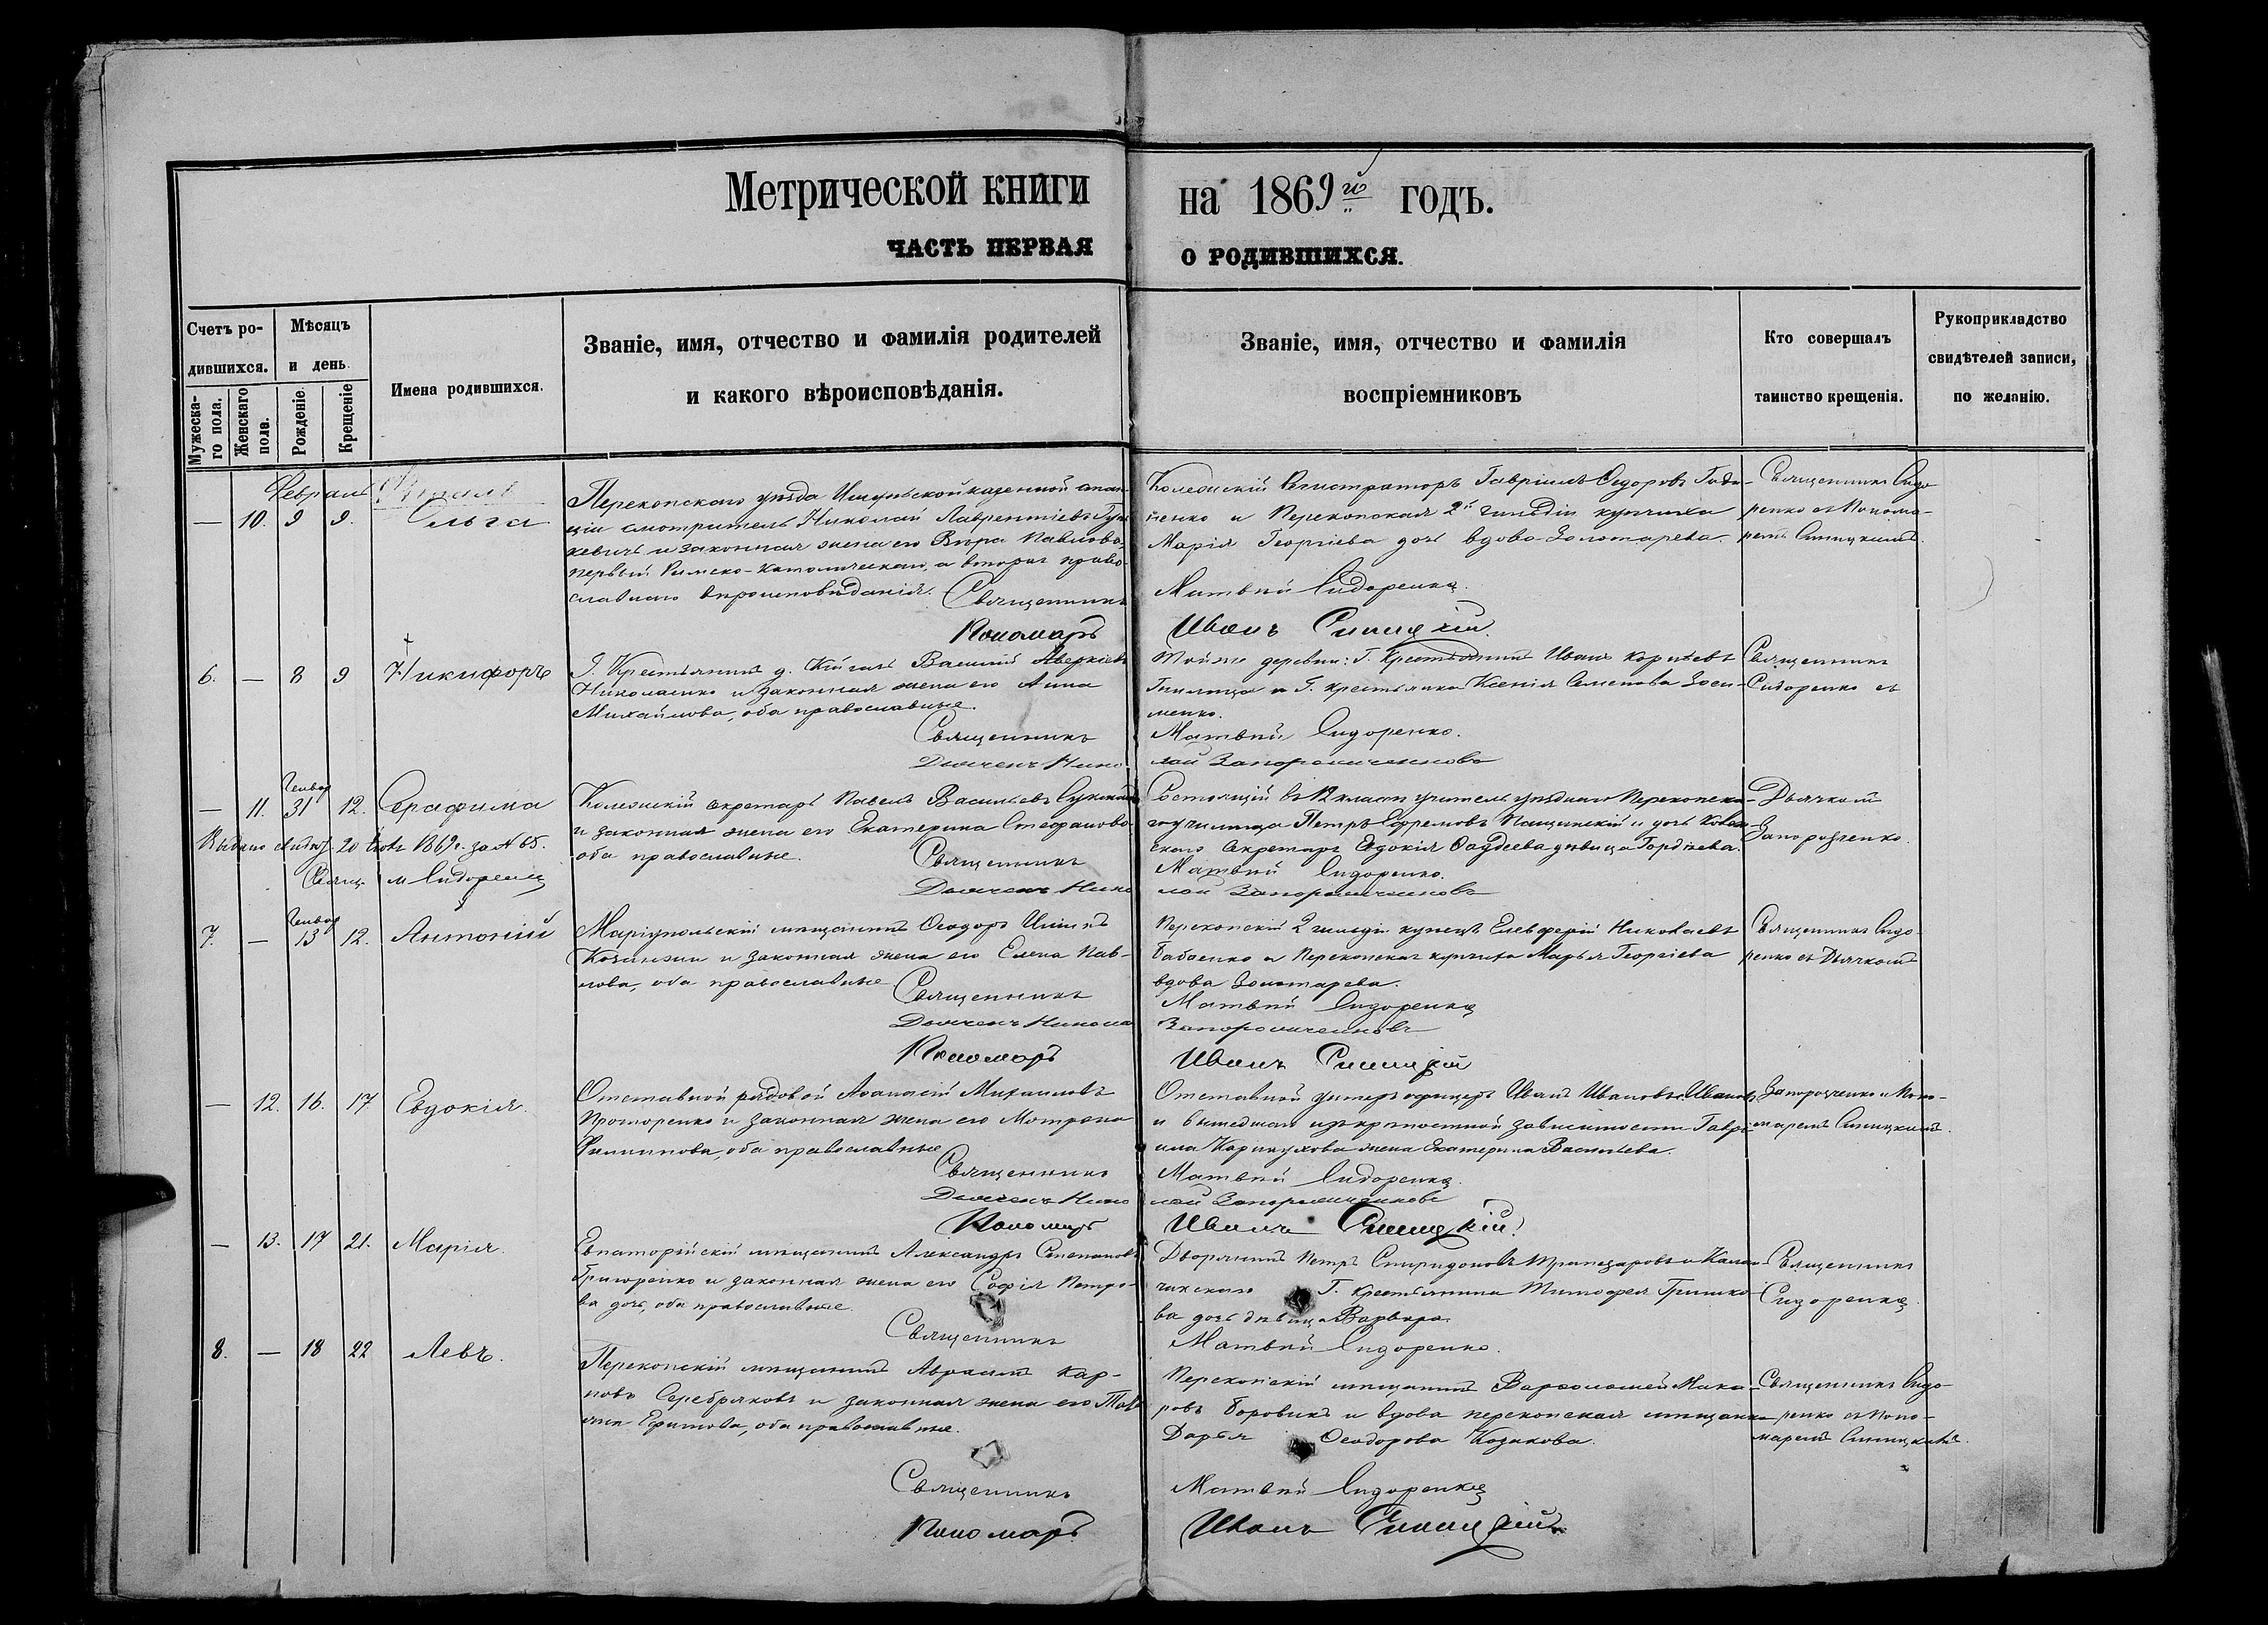 Метрической книги на 1869й годъ.
ЧАСТЬ ПЕРВАЯ О РОДИВШИХСЯ.
Счетъ родившихся.
Мужескаго пола.
Женскаго пола.
Мѣсяцъ и день.
Рожденіе.
Крещеніе
Имена родившихся.
Званіе, имя, отчество и фамилія родителей
и какого вѣроисповѣданія.
Званіе, имя, отчество и фамилія
воспріемниковъ
Кто совершалъ
таинство крещенія.
Рукоприкладство
свидѣтелей записи,
по желанію.
Февраль
— 10. 9 9. Ольга
Перекопскаго уѣзда казенной стан-
ціи смотритель Николай Лаврентіевъ
кевичъ и законная жена его Вѣра Павлова,
первый Римско-Католическаго, а вторая право-
славнаго вѣроисповѣданія. Священникъ
Пономарь
Колежскій Регистраторъ Гавріилъ Ѳедоровъ
ненко и Перекопская 2й гильдіи купчиха
Марія Георгіева дочь вдова Золотарева.
Матвѣй Сидоренко.
Иванъ Синицкій.
Священникъ Сидо-
ренко съ Понома-
ремъ Синицкимъ.
6. — 8 9 Никифоръ
Г. Крестьянинъ д. Василій Аверкіевъ
Николаенко и законная жена его Анна
Михайлова, оба православные.
Священникъ
Дьячекъ Нико
Той же деревни: Г. Крестьянинъ Иванъ
и Г. крестьянка Ксенія Семенова
менко.
Матвѣй Сидоренко.
лай Запорожченковъ
Священникъ
Сидоренко съ
Генвар
— 11. 31 12. Серафима
Выдано 1869г. за № 65.
Свящ. М Сидоренко
Колежскій секретарь Павелъ Васильевъ
и законная жена его Екатерина Стефанова
оба православные.
Священникъ
Дьячекъ Нико
Состоящій въ 12 классѣ учитель уѣзднаго Перекопска-
го училища Петръ Ефремовъ Пащинскій и дочь Колеж-
скаго Секретаря Евдокія Фаддеева дѣвица Гордѣева.
Матвѣй Сидоренко.
лай Запорожченковъ
Дьячкомъ
Запорожченко.
Генвар
7. — 13 12. Антоній
Маріупольскій мѣщанинъ Ѳеодоръ
и законная жена его Елена Пав-
лова, оба православные
Священникъ
Дьячекъ Никола
Пономарь
Перекопскій 2 гильдіи купецъ Елевферій Николаевъ
Бабаенко и Перекопская купчиха Марья Георгіева
вдова Золотарева.
Матвѣй Сидоренко
Запорожченковъ
Иванъ Синицкій
Священникъ Сидо-
ренко съ Дьячкомъ
— 12. 16. 17 Евдокія.
Отставной рядовой Аѳанасій Михаиловъ
и законная жена его Мотрона
Филиппова, оба православные
Священникъ
Дьячекъ Нико
Пономарь
Отставной унтеръ офицеръ Иванъ Ивановъ Ивановъ
и вышедшаго изъ крѣпостной зависимости Гаври-
ила жена Екатерина Васильева.
Матвѣй Сидоренко.
лай Запорожченковъ
Иванъ Синицкій
Запорожченко и Поно-
маремъ Синицкимъ.
— 13. 17 21. Марія.
Евпаторійскій мѣщанинъ Александръ Степановъ
Григоренко и законная жена его Софія Петро-
ва дочь, оба православные.
Священникъ
Дворянинъ Петръ Спиридоновъ и
Г. крестьянина Тимоѳея Гришко-
ва дочь дѣвица Варвара.
Матвѣй Сидоренко.
Священникъ
Сидоренко.
8. — 18 22 Левъ.
Перекопскій мѣщанинъ Авраамъ Кар-
повъ Серебряковъ и законная жена его
Ефимова, оба православные.
Священникъ
Пономарь
Перекопскій мѣщанинъ Варѳоломей Мака-
ровъ Боровикъ и вдова перекопская мѣщанка
Дарья Ѳеодорова Козакова.
Матвѣй Сидоренко
Иванъ Синицкій.
Священникъ Сидо-
ренко съ Поно-
маремъ Синицкимъ.